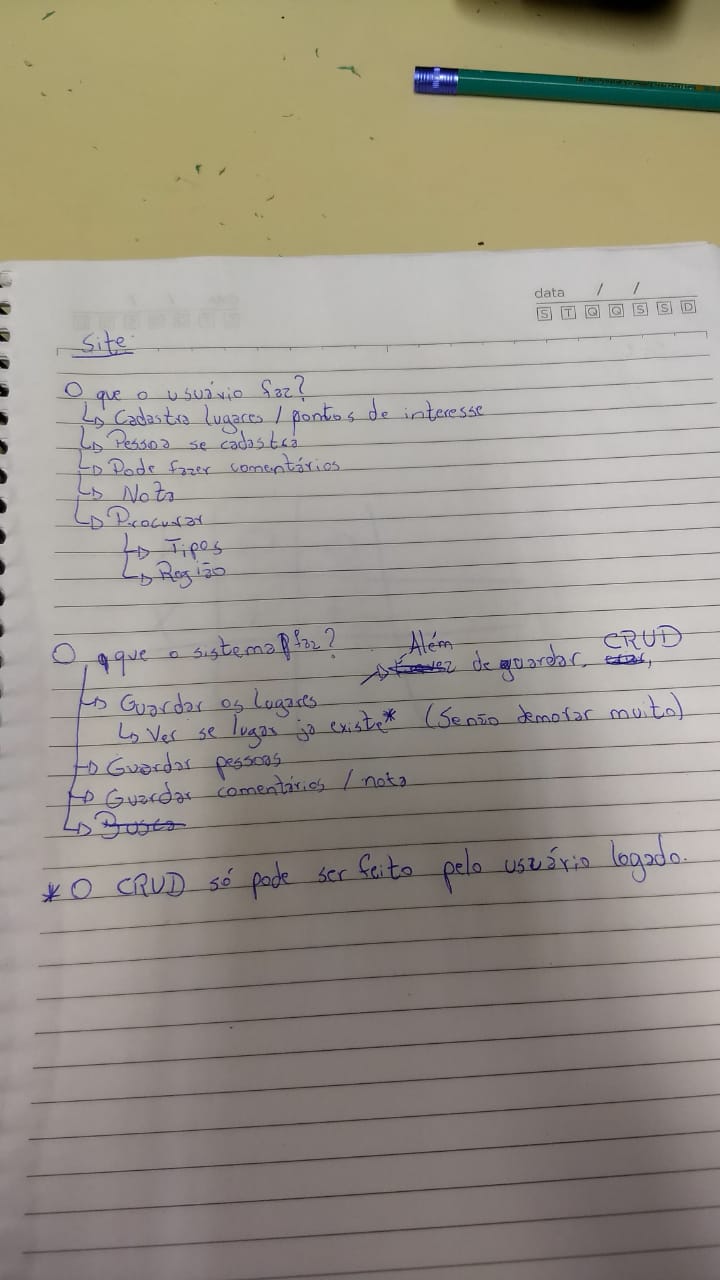 data / /
S T Q Q S S D
Site
O que o usuário faz?
↳ Cadastra lugares / pontos de interesse
↳ Pessoa se cadastra
↳ Pode fazer comentários
↳ Nota
↳ Procurar
↳ Tipos
↳ Região
O que o sistema faz?
Além de guardar, CRUD
↳ Guardar os lugares
↳ Ver se lugar já existe* (Se não demorar muito)
↳ Guardar pessoas
↳ Guardar comentários / nota
↳ Busca
* O CRUD só pode ser feito pelo usuário logado.